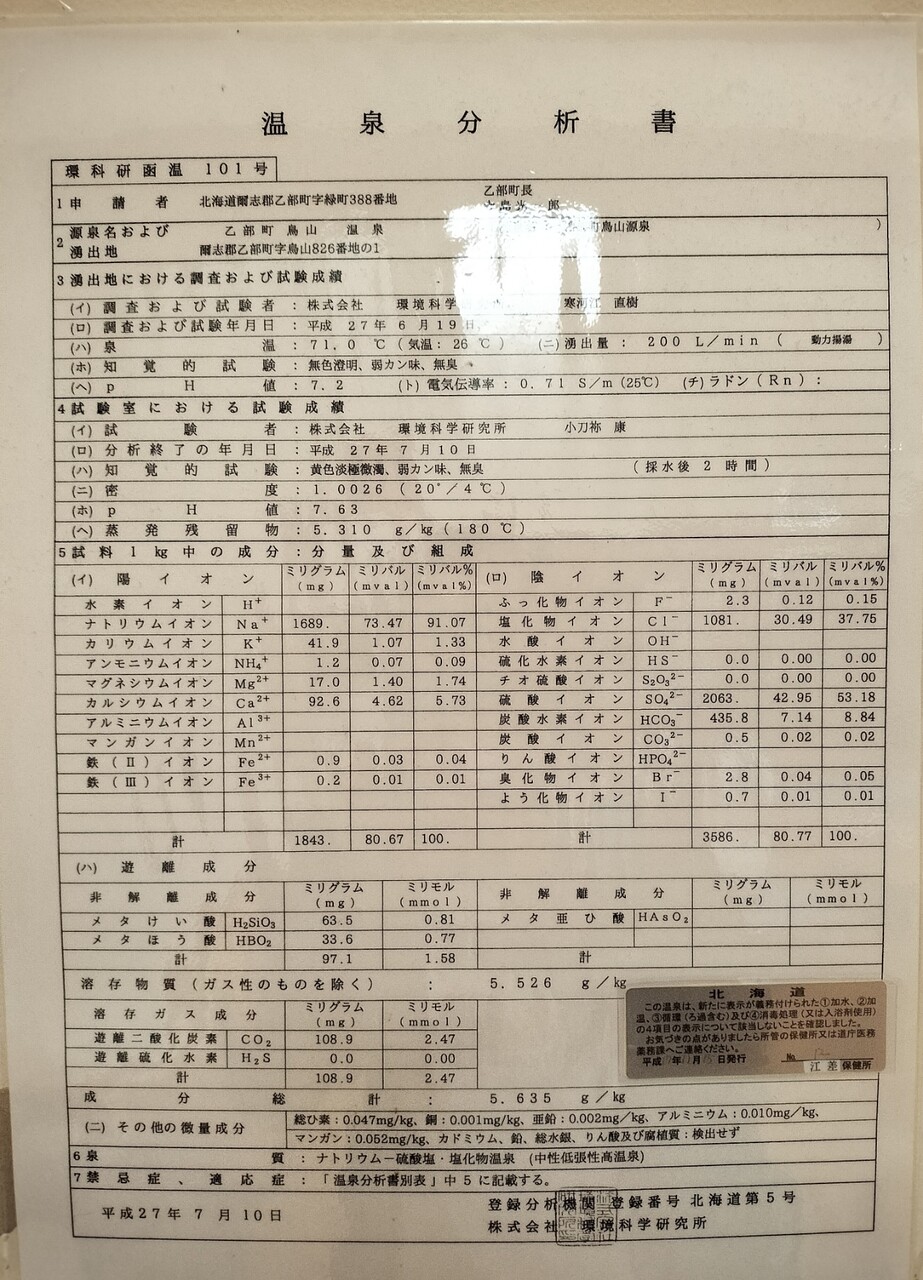 温泉分析書
環科研函温 101号
1 申請者 北海道爾志郡乙部町字緑町388番地 乙部町長
2 源泉名および 乙部町鳥山 温泉 町鳥山源泉 )
湧出地 爾志郡乙部町字鳥山826番地の1
3 湧出地における調査および試験成績
(イ) 調査および試験者 : 株式会社 環境科学 寒河江 直樹
(ロ) 調査および試験年月日 : 平成 27年 6月19日
(ハ) 泉温 : 71.0 ℃ (気温: 26 ℃) (ニ) 湧出量 : 200 L/min ( 動力揚湯 )
(ホ) 知覚的試験 : 無色澄明、弱カン味、無臭
(ヘ) pH値 : 7.2 (ト) 電気伝導率 : 0.71 S/m (25℃) (チ) ラドン(Rn) :
4 試験室における試験成績
(イ) 試験者 : 株式会社 環境科学研究所 小刀祢 康
(ロ) 分析終了の年月日 : 平成 27年 7月10日
(ハ) 知覚的試験 : 黄色淡極微濁、弱カン味、無臭 (採水後2時間)
(ニ) 密度 : 1.0026 (20°/4℃)
(ホ) pH値 : 7.63
(ヘ) 蒸発残留物 : 5.310 g/kg (180℃)
5 試料1kg中の成分 : 分量及び組成
(イ) 陽イオン ミリグラム (mg) ミリバル (mval) ミリバル% (mval%) (ロ) 陰イオン ミリグラム (mg) ミリバル (mval) ミリバル% (mval%)
水素イオン H⁺ ふっ化物イオン F⁻ 2.3 0.12 0.15
ナトリウムイオン Na⁺ 1689. 73.47 91.07 塩化物イオン Cl⁻ 1081. 30.49 37.75
カリウムイオン K⁺ 41.9 1.07 1.33 水酸イオン OH⁻
アンモニウムイオン NH₄⁺ 1.2 0.07 0.09 硫化水素イオン HS⁻ 0.0 0.00 0.00
マグネシウムイオン Mg²⁺ 17.0 1.40 1.74 チオ硫酸イオン S₂O₃²⁻ 0.0 0.00 0.00
カルシウムイオン Ca²⁺ 92.6 4.62 5.73 硫酸イオン SO₄²⁻ 2063. 42.95 53.18
アルミニウムイオン Al³⁺ 炭酸水素イオン HCO₃⁻ 435.8 7.14 8.84
マンガンイオン Mn²⁺ 炭酸イオン CO₃²⁻ 0.5 0.02 0.02
鉄(II)イオン Fe²⁺ 0.9 0.03 0.04 りん酸イオン HPO₄²⁻
鉄(III)イオン Fe³⁺ 0.2 0.01 0.01 臭化物イオン Br⁻ 2.8 0.04 0.05
よう化物イオン I⁻ 0.7 0.01 0.01
計 1843. 80.67 100. 計 3586. 80.77 100.
(ハ) 遊離成分
非解離成分 ミリグラム (mg) ミリモル (mmol) 非解離成分 ミリグラム (mg) ミリモル (mmol)
メタけい酸 H₂SiO₃ 63.5 0.81 メタ亜ひ酸 HAsO₂
メタほう酸 HBO₂ 33.6 0.77
計 97.1 1.58 計
溶存物質(ガス性のものを除く) : 5.526 g/kg
溶存ガス成分 ミリグラム (mg) ミリモル (mmol)
遊離二酸化炭素 CO₂ 108.9 2.47
遊離硫化水素 H₂S 0.0 0.00
計 108.9 2.47
北海道
この温泉は、新たに表示が義務付けられた①加水、②加
温、③循環(ろ過含む)及び④消毒処理(又は入浴剤使用)
の4項目の表示について該当しないことを確認しました。
お気づきの点がありましたら所管の保健所又は道庁医務
薬務課へご連絡ください。
平成 日発行 No.
江差保健所
成分総計 : 5.635 g/kg
(二) その他の微量成分 総ひ素:0.047mg/kg、銅:0.001mg/kg、亜鉛:0.002mg/kg、アルミニウム:0.010mg/kg、
マンガン:0.052mg/kg、カドミウム、鉛、総水銀、りん酸及び腐植質:検出せず
6 泉質 : ナトリウム−硫酸塩・塩化物温泉 (中性低張性高温泉)
7 禁忌症、適応症 : 「温泉分析書別表」中5に記載する。
平成27年 7月10日
登録分析機関 登録番号 北海道第5号
株式会社 環境科学研究所